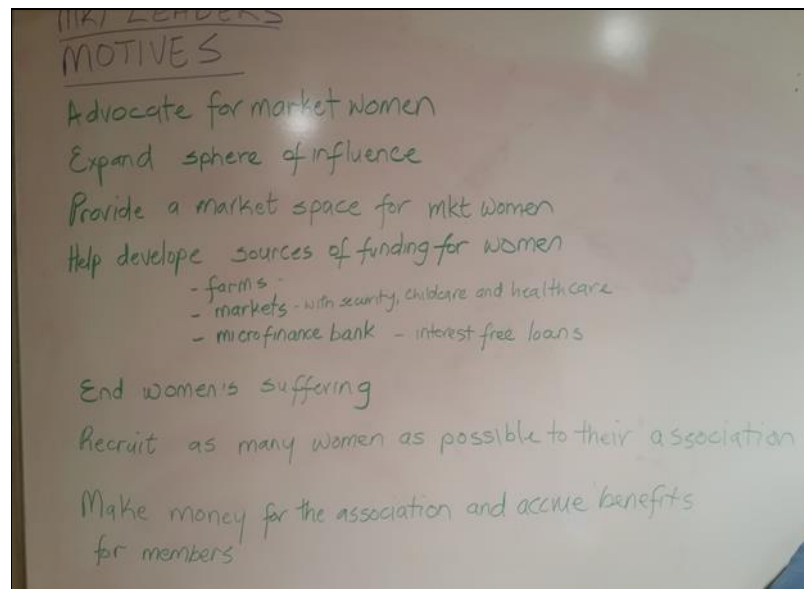 MKT LEADERS
MOTIVES
Advocate for market women
Expand sphere of influence
Provide a market space for mkt women
Help develope sources of funding for women
- farms
- markets - with security, childcare and healthcare
- microfinance bank - interest free loans
End women's suffering
Recruit as many women as possible to their association
Make money for the association and accrue benefits
for members